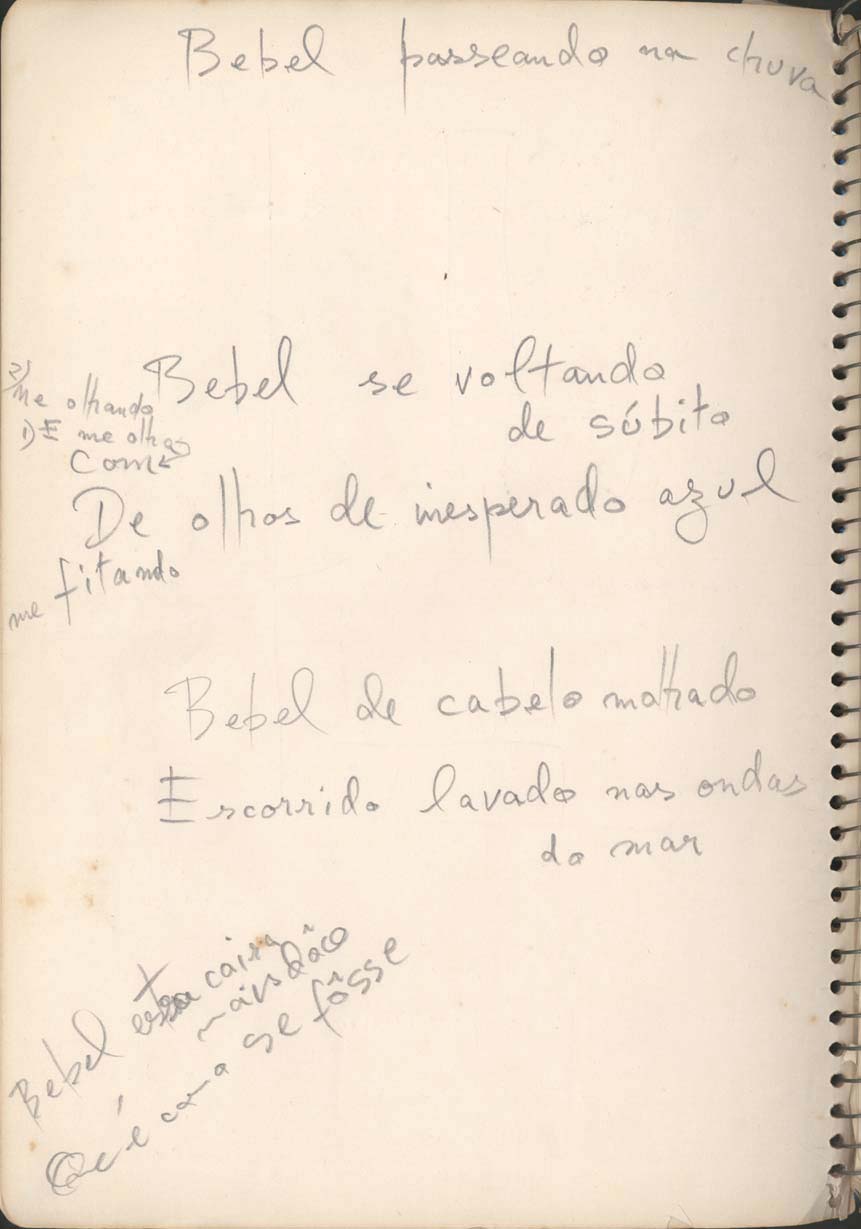 Bebel passeando na chuva
Bebel se voltando
de súbito
2) Me olhando
1) E me olhas
Com
De olhos de inesperado azul
me fitando
Bebel de cabelo molhado
Escorrido lavado nas ondas
do mar
Bebel essa coisa
Que é como se fôsse